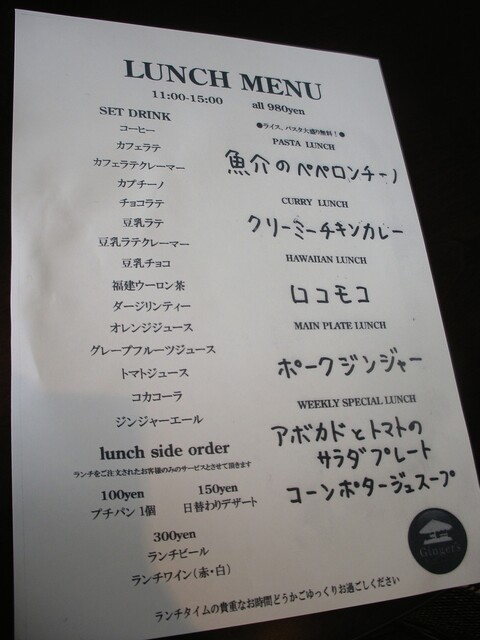 LUNCH MENU
11:00-15:00 all 980yen
SET DRINK
コーヒー
カフェラテ
カフェラテクレーマー
カプチーノ
チョコラテ
豆乳ラテ
豆乳ラテクレーマー
豆乳チョコ
福建ウーロン茶
ダージリンティー
オレンジジュース
グレープフルーツジュース
トマトジュース
コカコーラ
ジンジャーエール
lunch side order
ランチをご注文されたお客様のみのサービスとさせて頂きます
100yen 150yen
プチパン 1個 日替わりデザート
300yen
ランチビール
ランチワイン(赤・白)
●ライス、パスタ大盛り無料!●
PASTA LUNCH
魚介のペペロンチーノ
CURRY LUNCH
クリーミーチキンカレー
HAWAIIAN LUNCH
ロコモコ
MAIN PLATE LUNCH
ポークジンジャー
WEEKLY SPECIAL LUNCH
アボカドとトマトの
サラダプレート
コーンポタージュスープ
Ginger's
ランチタイムの貴重なお時間どうかごゆっくりお過ごしください